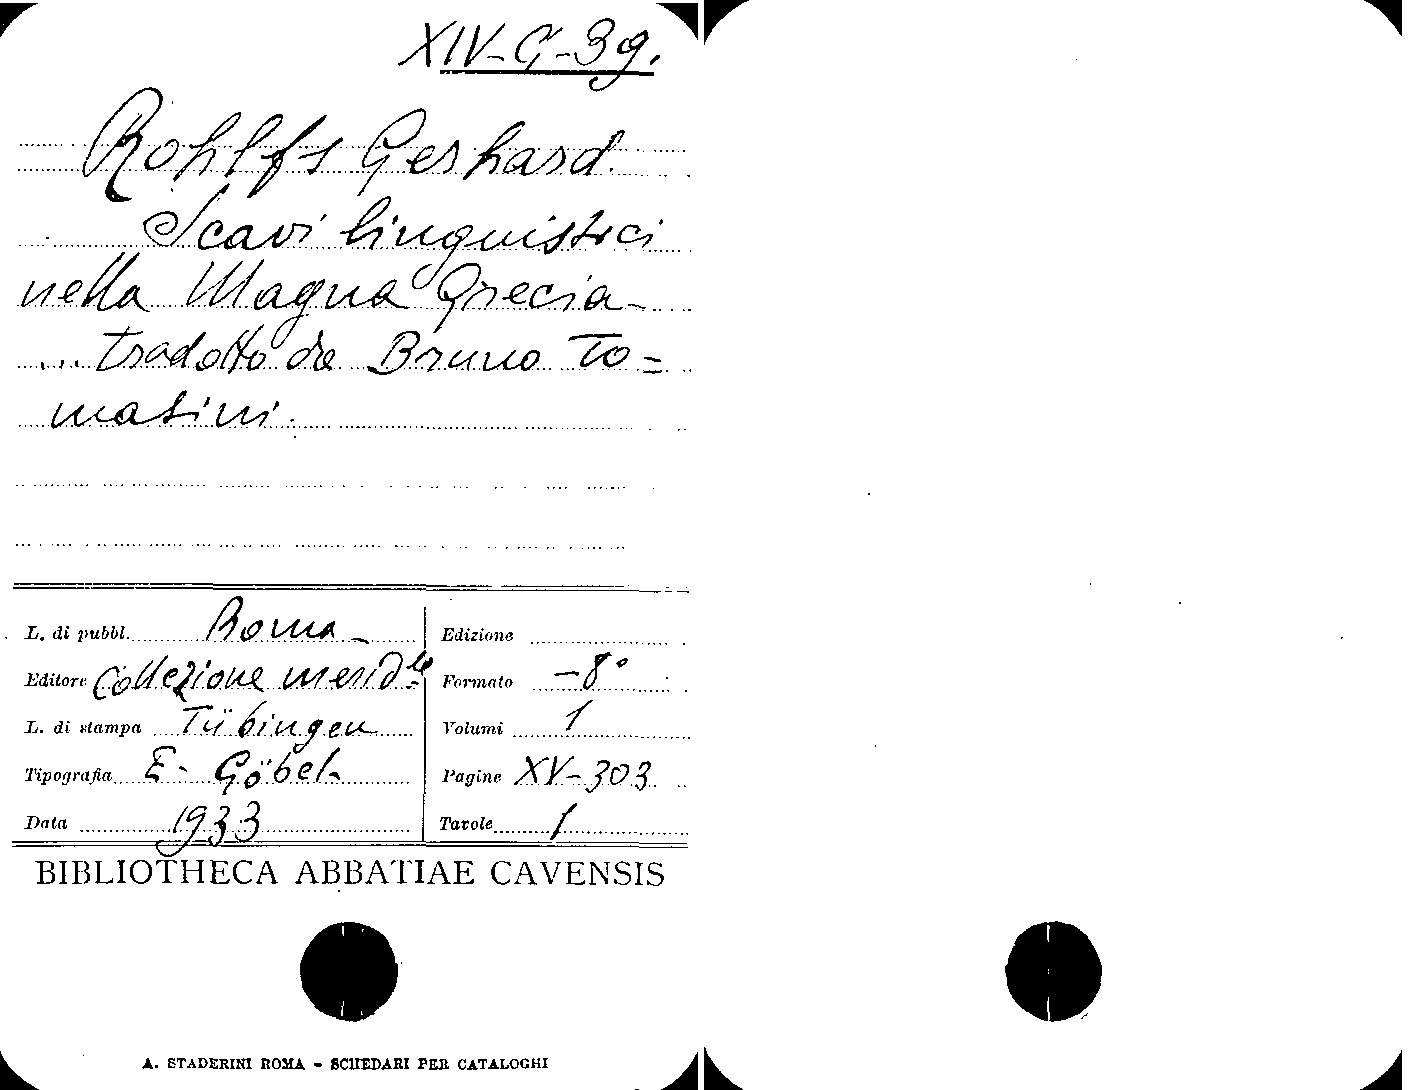 XIV-G-39.
Rohlfs Gerhard.
Scavi linguistici
nella Magna Grecia-
... tradotto da Bruno To=
masini.
L. di pubbl. Roma -
Editore Collezione merid.le
L. di stampa Tübingen
Tipografia E. Göbel-
Data 1933
Edizione
Formato -8°
Volumi 1
Pagine XV-303
Tavole 1
BIBLIOTHECA ABBATIAE CAVENSIS
A. STADERINI ROMA - SCHEDARI PER CATALOGHI